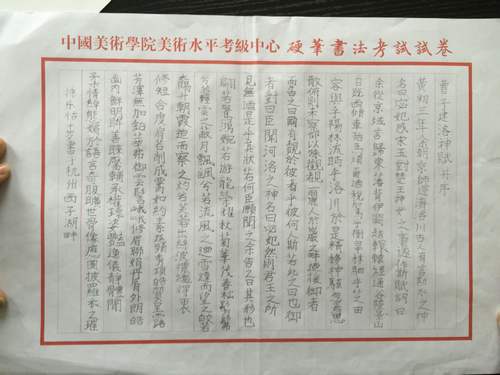 中國美術學院美術水平考級中心 硬筆書法考試試卷
曹子建洛神賦并序
黃初三年余朝京師還濟洛川古人有言斯水之神
名曰宓妃感宋玉對楚王神女之事遂作斯賦詞曰
余從京域言歸東藩背伊闕越轘轅經通谷陵景山
日既西傾車殆馬煩爾迺稅駕乎蘅皋秣駟乎芝田
容與乎陽林流眄乎洛川於是精移神駭忽焉思
散俯則未察仰以殊觀覩一麗人於巖之畔迺援御者
而告之曰爾有覿於彼者乎彼何人斯若此之豔也御
者對曰臣聞河洛之神名曰宓妃然則君王之所
見無迺是乎其狀若何臣願聞之余告之曰其形也
翩若驚鴻婉若游龍榮曜秋菊華茂春松髣髴
兮若輕雲之蔽月飄颻兮若流風之迴雪遠而望之皎若
太陽升朝霞迫而察之灼若芙蓉出淥波穠纖得衷
脩短合度肩若削成腰如約素延頸秀項皓質呈露
芳澤無加鉛華弗御雲髻峨峨脩眉聯娟丹脣外朗皓
齒內鮮明眸善睞靨輔承權瓌姿豔逸儀靜體閑
柔情綽態媚於語言奇服曠世骨像應圖披羅衣之璀
書于杭州西子湖畔